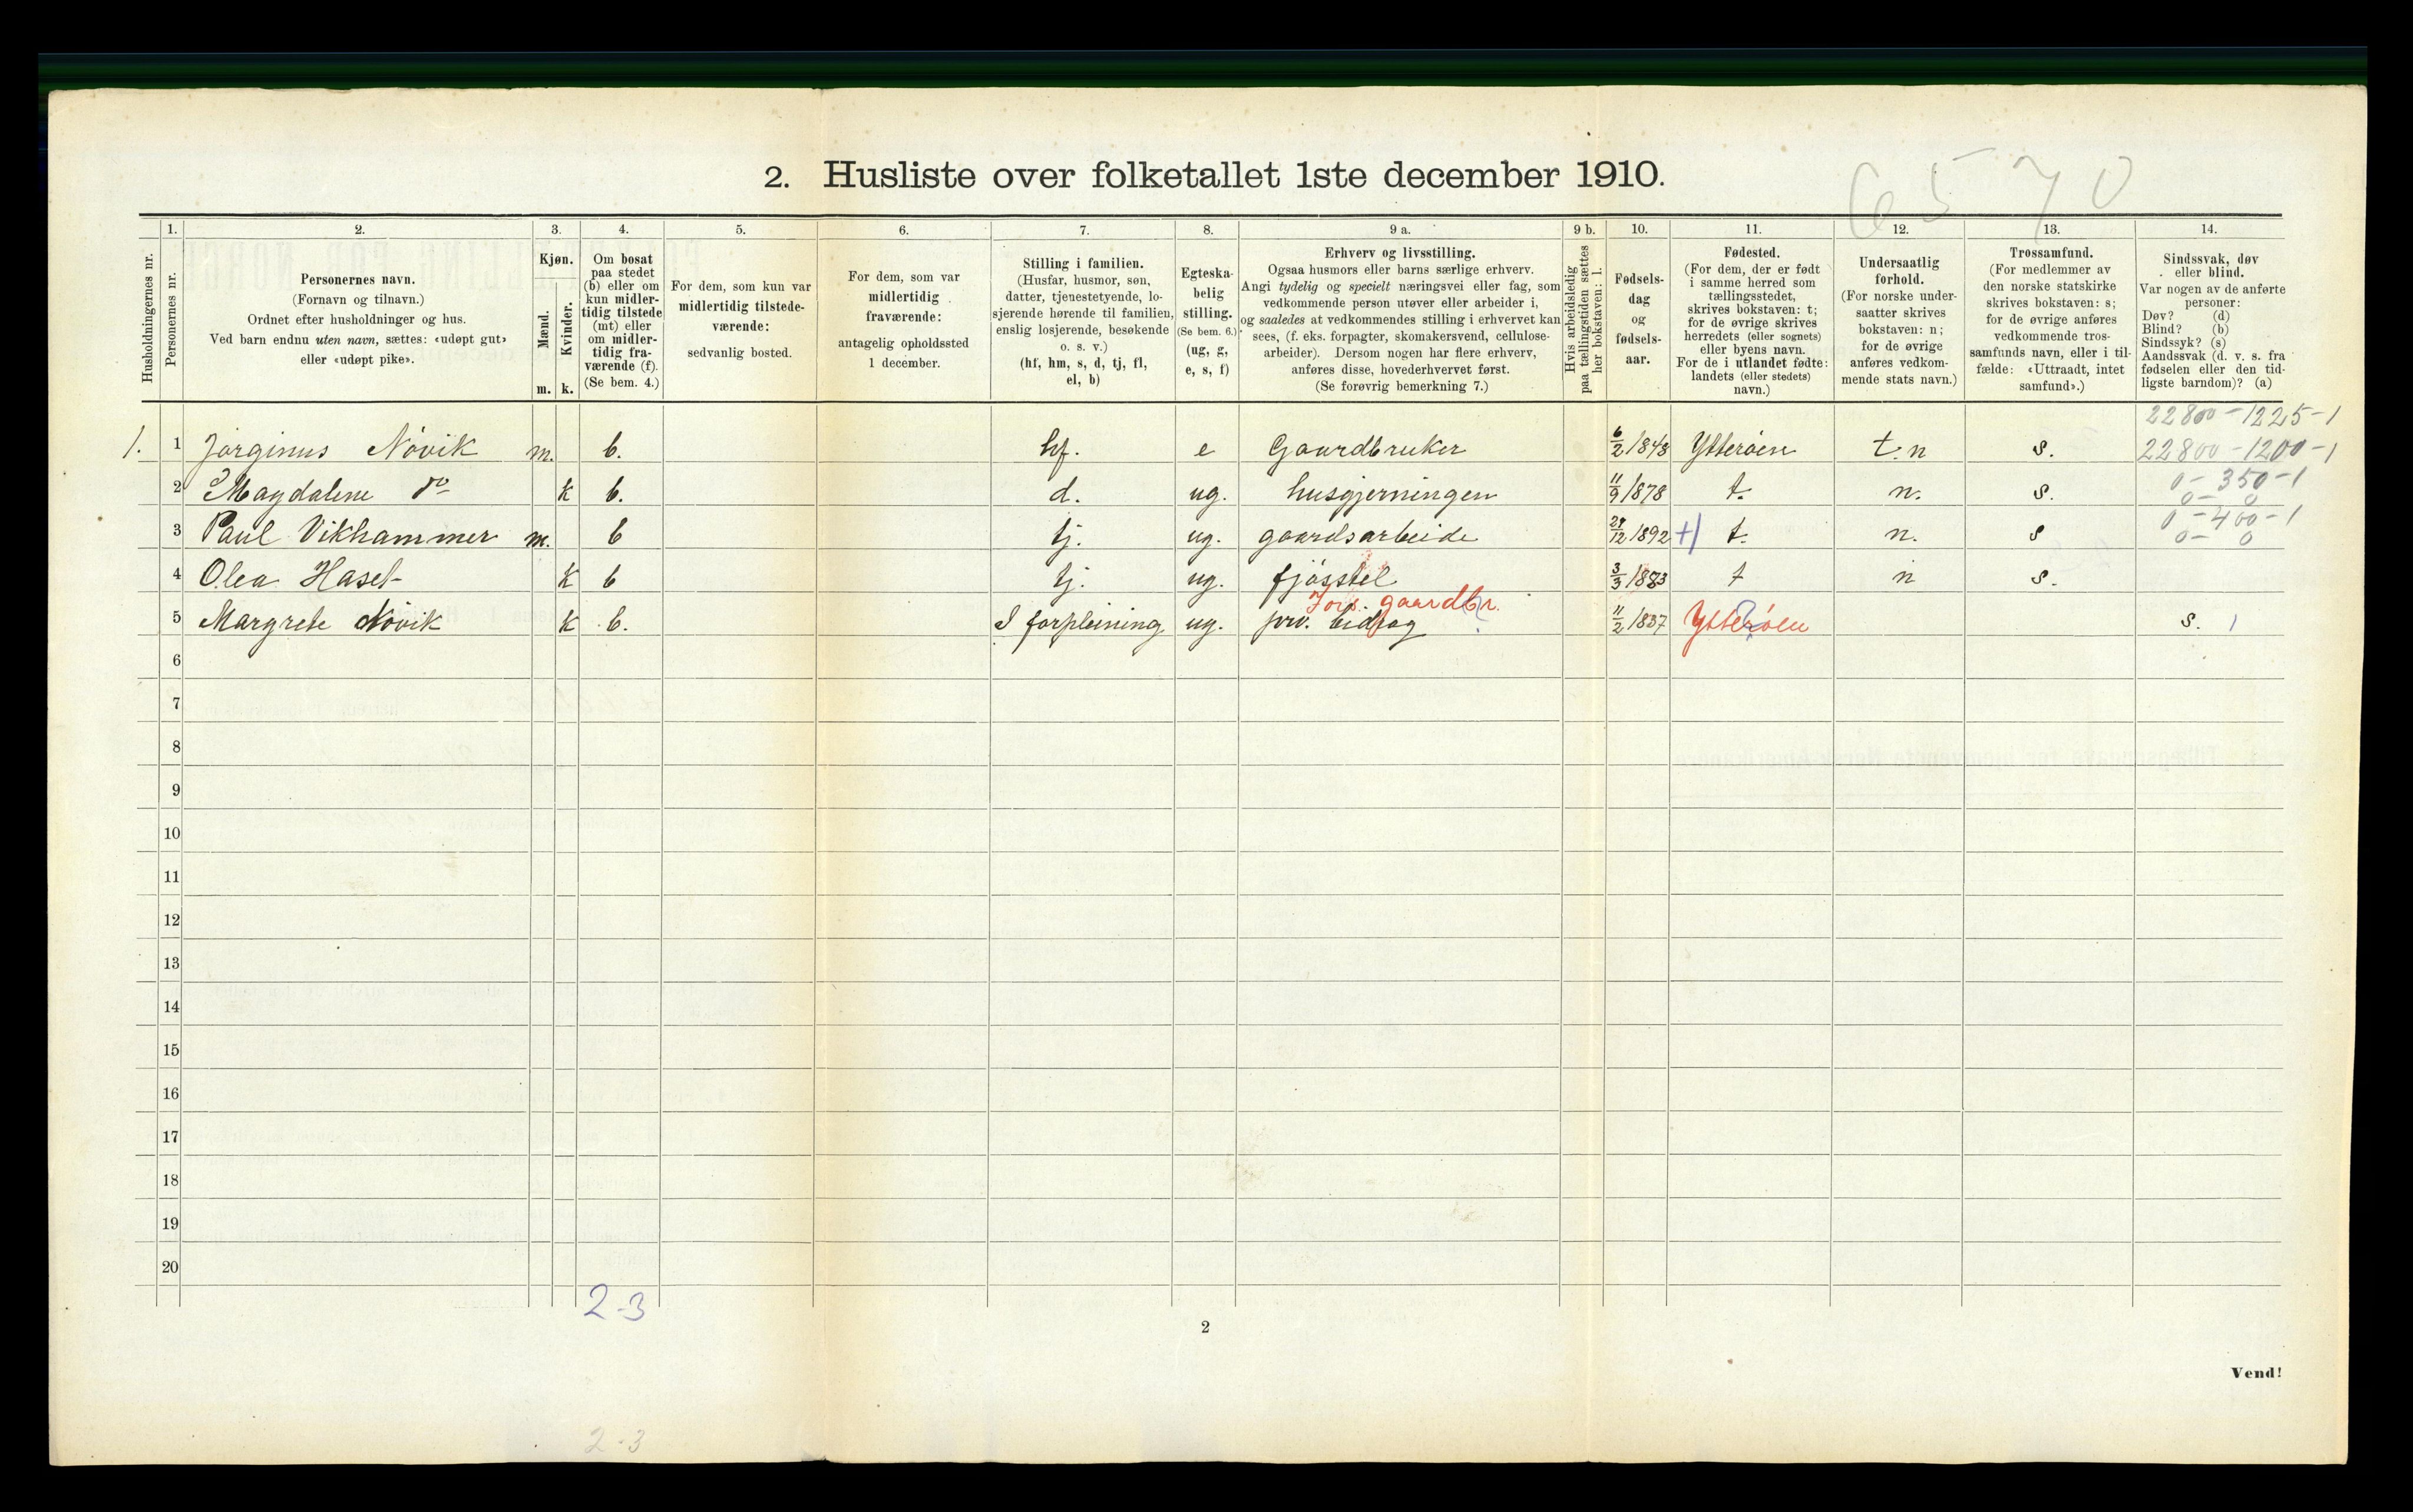 6570
2. Husliste over folketallet 1ste december 1910.
Husholdningernes nr.
1.
Personernes nr.
2.
Personernes navn.
(Fornavn og tilnavn.)
Ordnet efter husholdninger og hus.
Ved barn endnu uten navn, sættes: «udøpt gut»
eller «udøpt pike».
3.
Kjøn.
Mænd.
Kvinder.
m. k.
4.
Om bosat
paa stedet
(b) eller om
kun midler-
tidig tilstede
(mt) eller
om midler-
tidig fra-
værende (f).
(Se bem. 4.)
5.
For dem, som kun var
midlertidig tilstede-
værende:
sedvanlig bosted.
6.
For dem, som var
midlertidig
fraværende:
antagelig opholdssted
1 december.
7.
Stilling i familien.
(Husfar, husmor, søn,
datter, tjenestetyende, lo-
sjerende hørende til familien,
enslig losjerende, besøkende
o. s. v.)
(hf, hm, s, d, tj, fl,
el, b)
8.
Egteska-
belig
stilling.
(Se bem. 6.)
(ug, g,
e, s, f)
9 a.
Erhverv og livsstilling.
Ogsaa husmors eller barns særlige erhverv.
Angi tydelig og specielt næringsvei eller fag, som
vedkommende person utøver eller arbeider i,
og saaledes at vedkommendes stilling i erhvervet kan
sees, (f. eks. forpagter, skomakersvend, cellulose-
arbeider). Dersom nogen har flere erhverv,
anføres disse, hovederhvervet først.
(Se forøvrig bemerkning 7.)
9 b.
Hvis arbeidsledig
paa tællingstiden sættes
her bokstaven: l.
10.
Fødsels-
dag
og
fødsels-
aar.
11.
Fødested.
(For dem, der er født
i samme herred som
tællingsstedet,
skrives bokstaven: t;
for de øvrige skrives
herredets (eller sognets)
eller byens navn.
For de i utlandet fødte:
landets (eller stedets)
navn.)
12.
Undersaatlig
forhold.
(For norske under-
saatter skrives
bokstaven: n;
for de øvrige
anføres vedkom-
mende stats navn.)
13.
Trossamfund.
(For medlemmer av
den norske statskirke
skrives bokstaven: s;
for de øvrige anføres
vedkommende tros-
samfunds navn, eller i til-
fælde: «Uttraadt, intet
samfund».)
14.
Sindssvak, døv
eller blind.
Var nogen av de anførte
personer:
Døv? (d)
Blind? (b)
Sindssyk? (s)
Aandssvak (d. v. s. fra
fødselen eller den tid-
ligste barndom)? (a)
22800-1225-1
1. 1 Jørginus Növik m. b. hf. e Gaardbruker 6/2 1848 Ytterøen t. n s. 22800-1200-1
2 Magdalene do k b. d. ug. husgjerningen 11/9 1878 t. n. s. 0-350-1
0-0
3 Paul Vikhammer m. b tj. ug. gaardsarbeide 29/12 1892 +) t. n. s 0-400-1
0-0
4 Olea Hasel k b tj. ug. fjøsstel 3/3 1883 t n s.
Fors. gaardbr.
5 Margrete Növik k b. I forpleining ug. prv. bidrag 11/2 1837 Ytterøen s. 1
6
7
8
9
10
11
12
13
14
15
16
17
18
19
20
2-3
2
Vend!
2-3